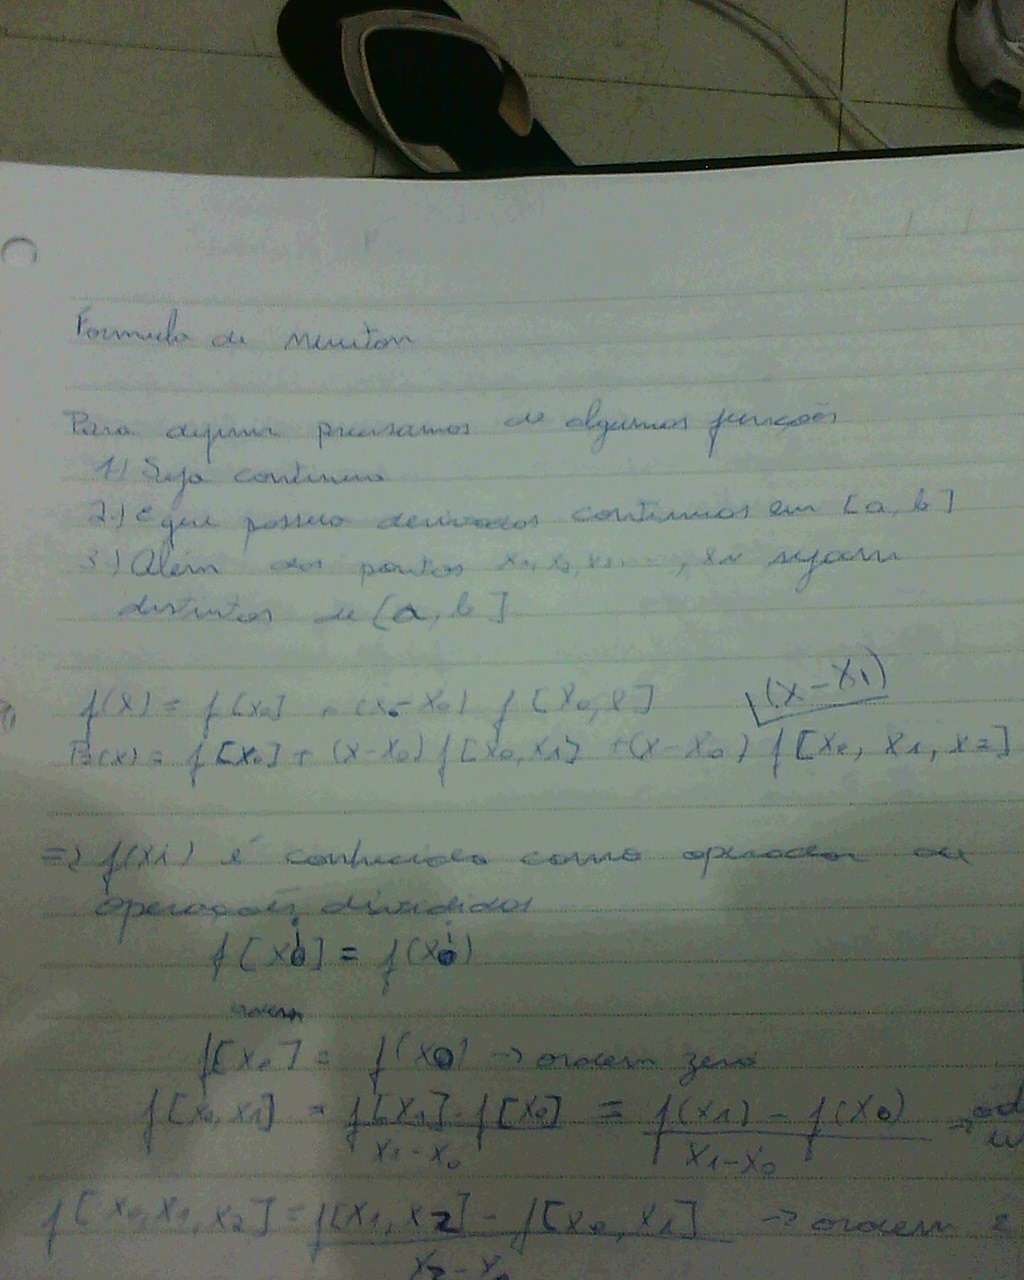 Formula de Newton
Para definir precisamos de algumas funções
1) Seja continua
2.) e que possua derivadas continuas em [a, b]
3.) Além dos pontos x₁, ..., xₙ sejam
distintos de [a, b]
(x-x₁)
f(x) = f[x₀] (x-x₀) f[x₀, x]
P₂(x) = f[x₀] + (x-x₀) f[x₀, x₁] + (x-x₀) f[x₀, x₁, x₂]
=> f(xi) é conhecido como operador de
operações divididas
f[xi] = f(xi)
f[x₀] = f(x₀) → ordem zero
f[x₀, x₁] = f[x₁] - f[x₀] = f(x₁) - f(x₀) →
x₁-x₀ x₁-x₀
f[x₀, x₁, x₂] = f[x₁, x₂] - f[x₀, x₁] → ordem 2
x₂-x₀